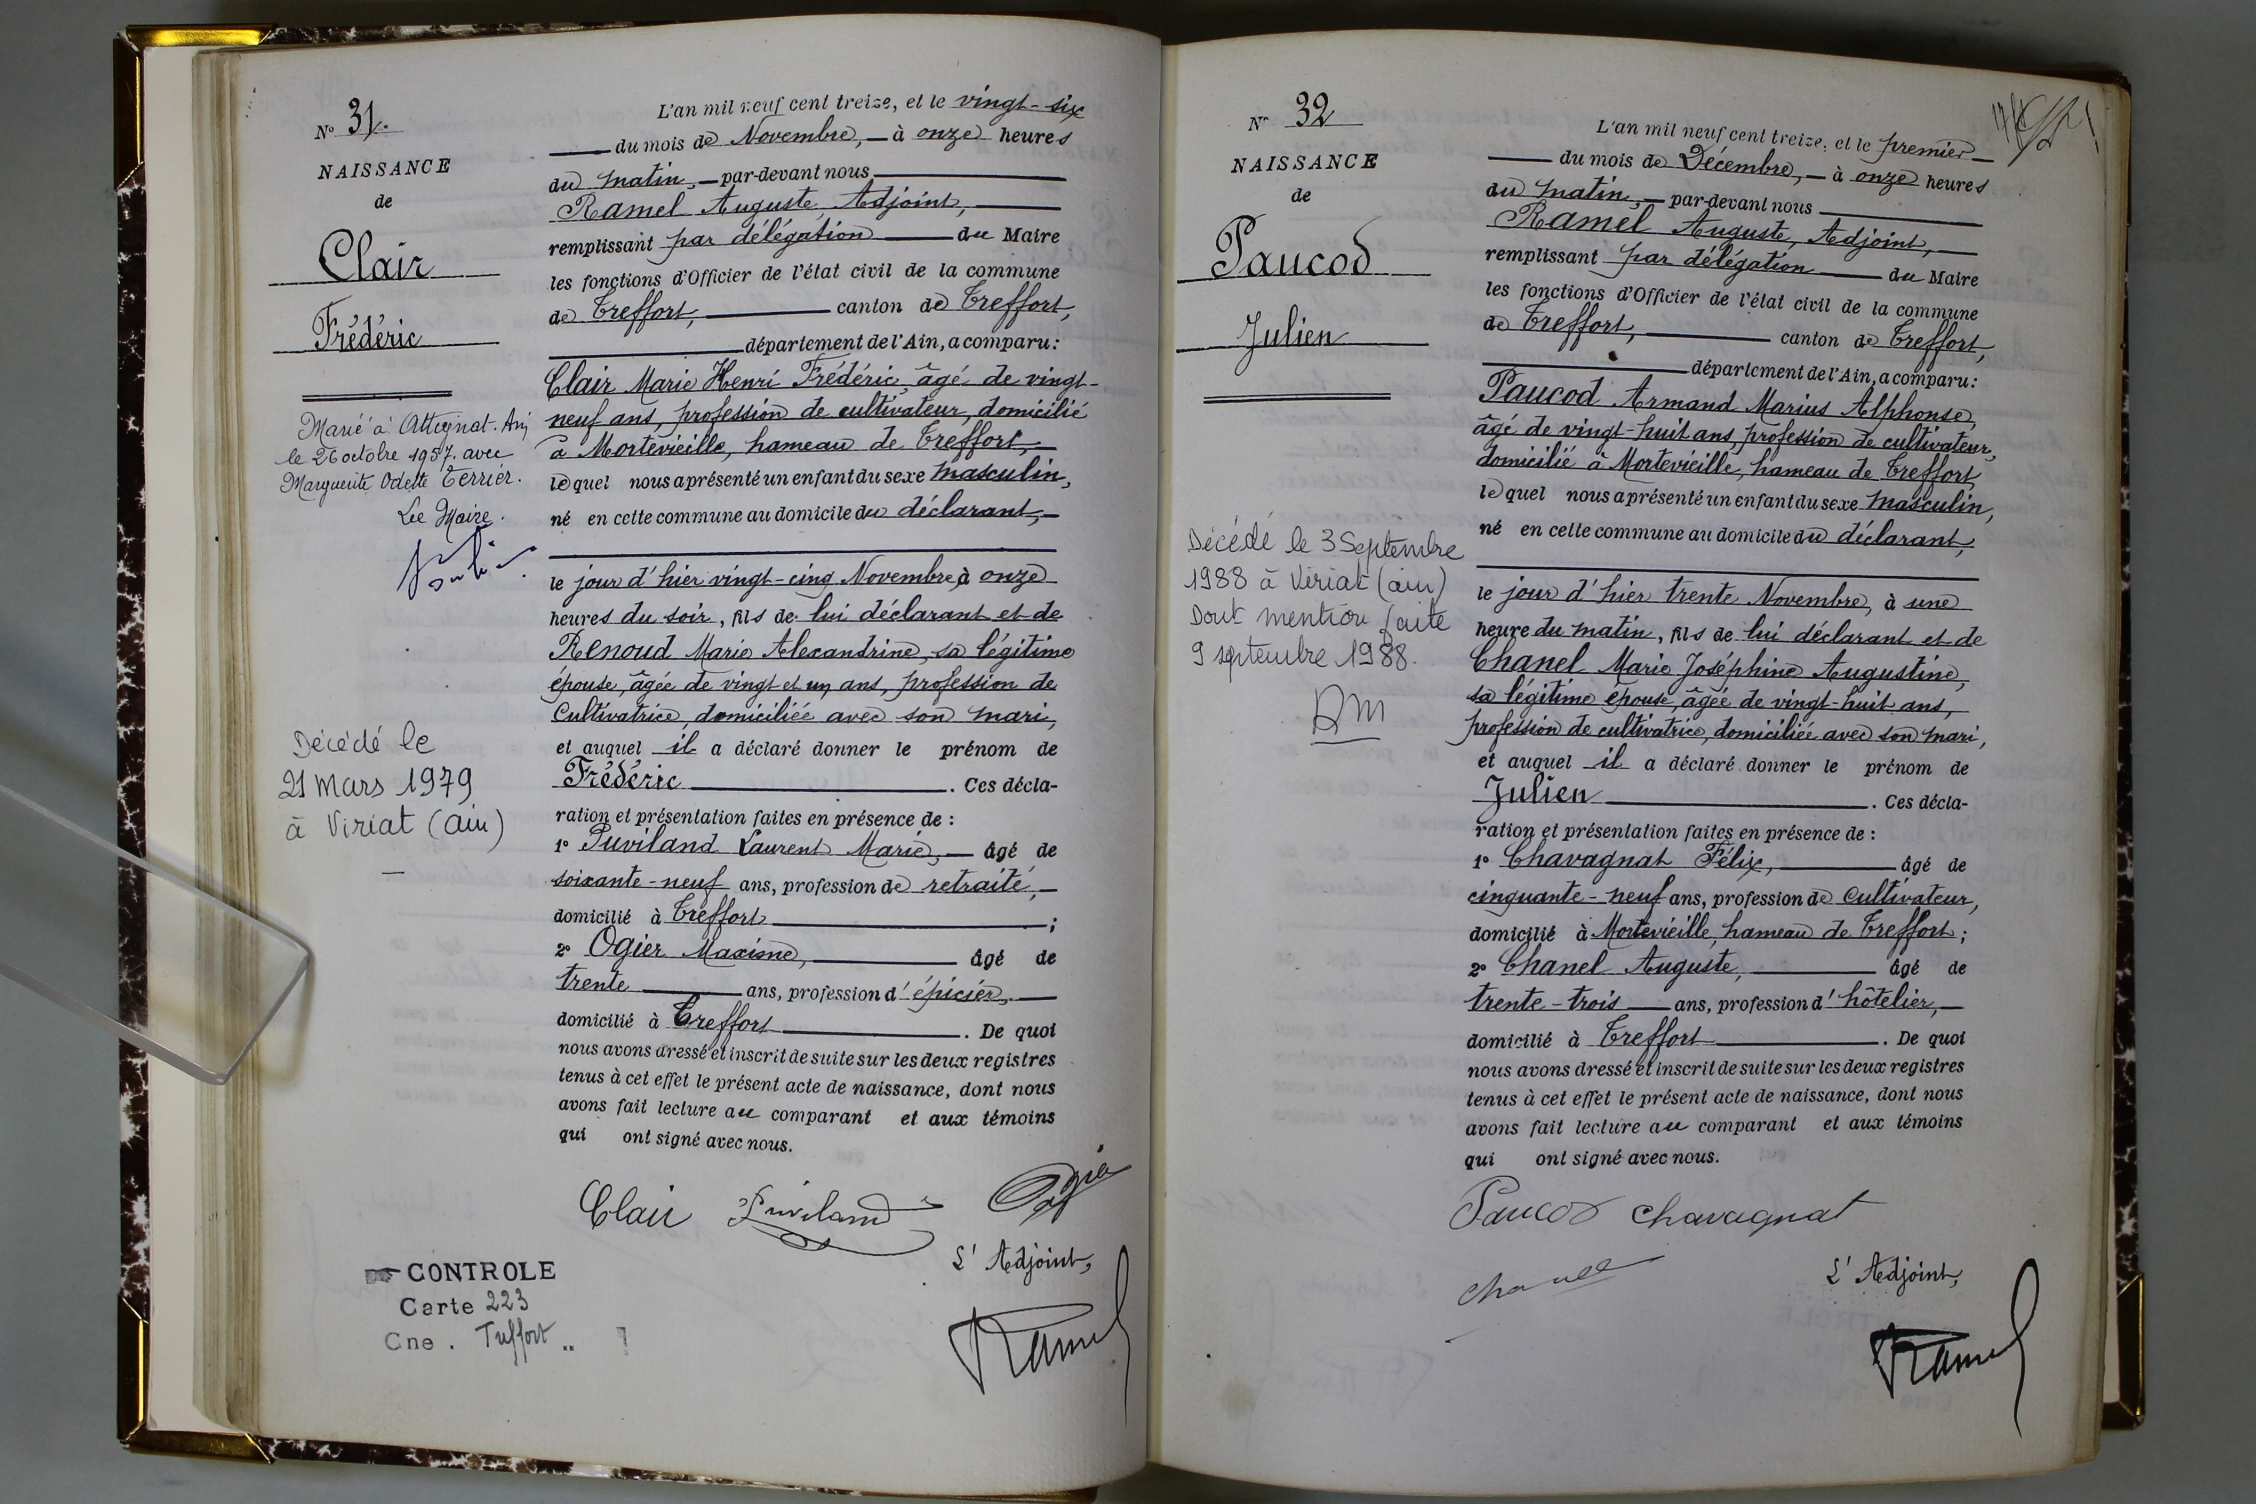 N° 31.
NAISSANCE
de
Clair
Frédéric
Marié à Attignat. Ain
le 26 octobre 1957. avec
Marguerite Odette Terrier.
Le Maire.
Décédé le
21 Mars 1979
à Viriat (Ain)
L'an mil neuf cent treize, et le vingt-six
du mois de Novembre, à onze heures
du matin, par-devant nous
Ramel Auguste, Adjoint,
remplissant par délégation du Maire
les fonctions d'Officier de l'état civil de la commune
de Treffort, canton de Treffort,
département de l'Ain, a comparu:
Clair Marie Henri Frédéric, âgé de vingt-
neuf ans, profession de cultivateur, domicilié
à Mortevieille, hameau de Treffort,
lequel nous a présenté un enfant du sexe masculin,
né en cette commune au domicile du déclarant,
le jour d'hier vingt-cinq Novembre, à onze
heures du soir, fils de lui déclarant et de
Renoud Marie Alexandrine, sa légitime
épouse, âgée de vingt et un ans, profession de
Cultivatrice, domiciliée avec son mari,
et auquel il a déclaré donner le prénom de
Frédéric. Ces décla-
ration et présentation faites en présence de :
1° Puviland Laurent Marie, âgé de
soixante-neuf ans, profession de retraité,
domicilié à Treffort ;
2° Ogier Maxime, âgé de
trente ans, profession d'épicier,
domicilié à Treffort. De quoi
nous avons dressé et inscrit de suite sur les deux registres
tenus à cet effet le présent acte de naissance, dont nous
avons fait lecture au comparant et aux témoins
qui ont signé avec nous.
Clair Puviland Ogier
L'Adjoint,
Ramel
CONTROLE
Carte 223
Cne. Treffort
N° 32
NAISSANCE
de
Paucod
Julien
Décédé le 3 Septembre
1988 à Viriat (ain)
Dont mention faite
9 septembre 1988.
L'an mil neuf cent treize, et le premier
du mois de Décembre, à onze heures
du matin, par-devant nous
Ramel Auguste, Adjoint,
remplissant par délégation du Maire
les fonctions d'Officier de l'état civil de la commune
de Treffort, canton de Treffort,
département de l'Ain, a comparu:
Paucod Armand Marius Alphonse,
âgé de vingt-huit ans, profession de cultivateur,
domicilié à Mortevieille, hameau de Treffort
lequel nous a présenté un enfant du sexe masculin,
né en cette commune au domicile du déclarant,
le jour d'hier trente Novembre, à une
heure du matin, fils de lui déclarant et de
Chanel Marie Joséphine Augustine,
sa légitime épouse, âgée de vingt-huit ans,
profession de cultivatrice, domiciliée avec son mari,
et auquel il a déclaré donner le prénom de
Julien. Ces décla-
ration et présentation faites en présence de :
1° Chavagnat Félix, âgé de
cinquante-neuf ans, profession de Cultivateur,
domicilié à Mortevieille, hameau de Treffort ;
2° Chanel Auguste, âgé de
trente-trois ans, profession d'hôtelier,
domicilié à Treffort. De quoi
nous avons dressé et inscrit de suite sur les deux registres
tenus à cet effet le présent acte de naissance, dont nous
avons fait lecture au comparant et aux témoins
qui ont signé avec nous.
Paucod Chavagnat
Chanel
L'Adjoint,
Ramel